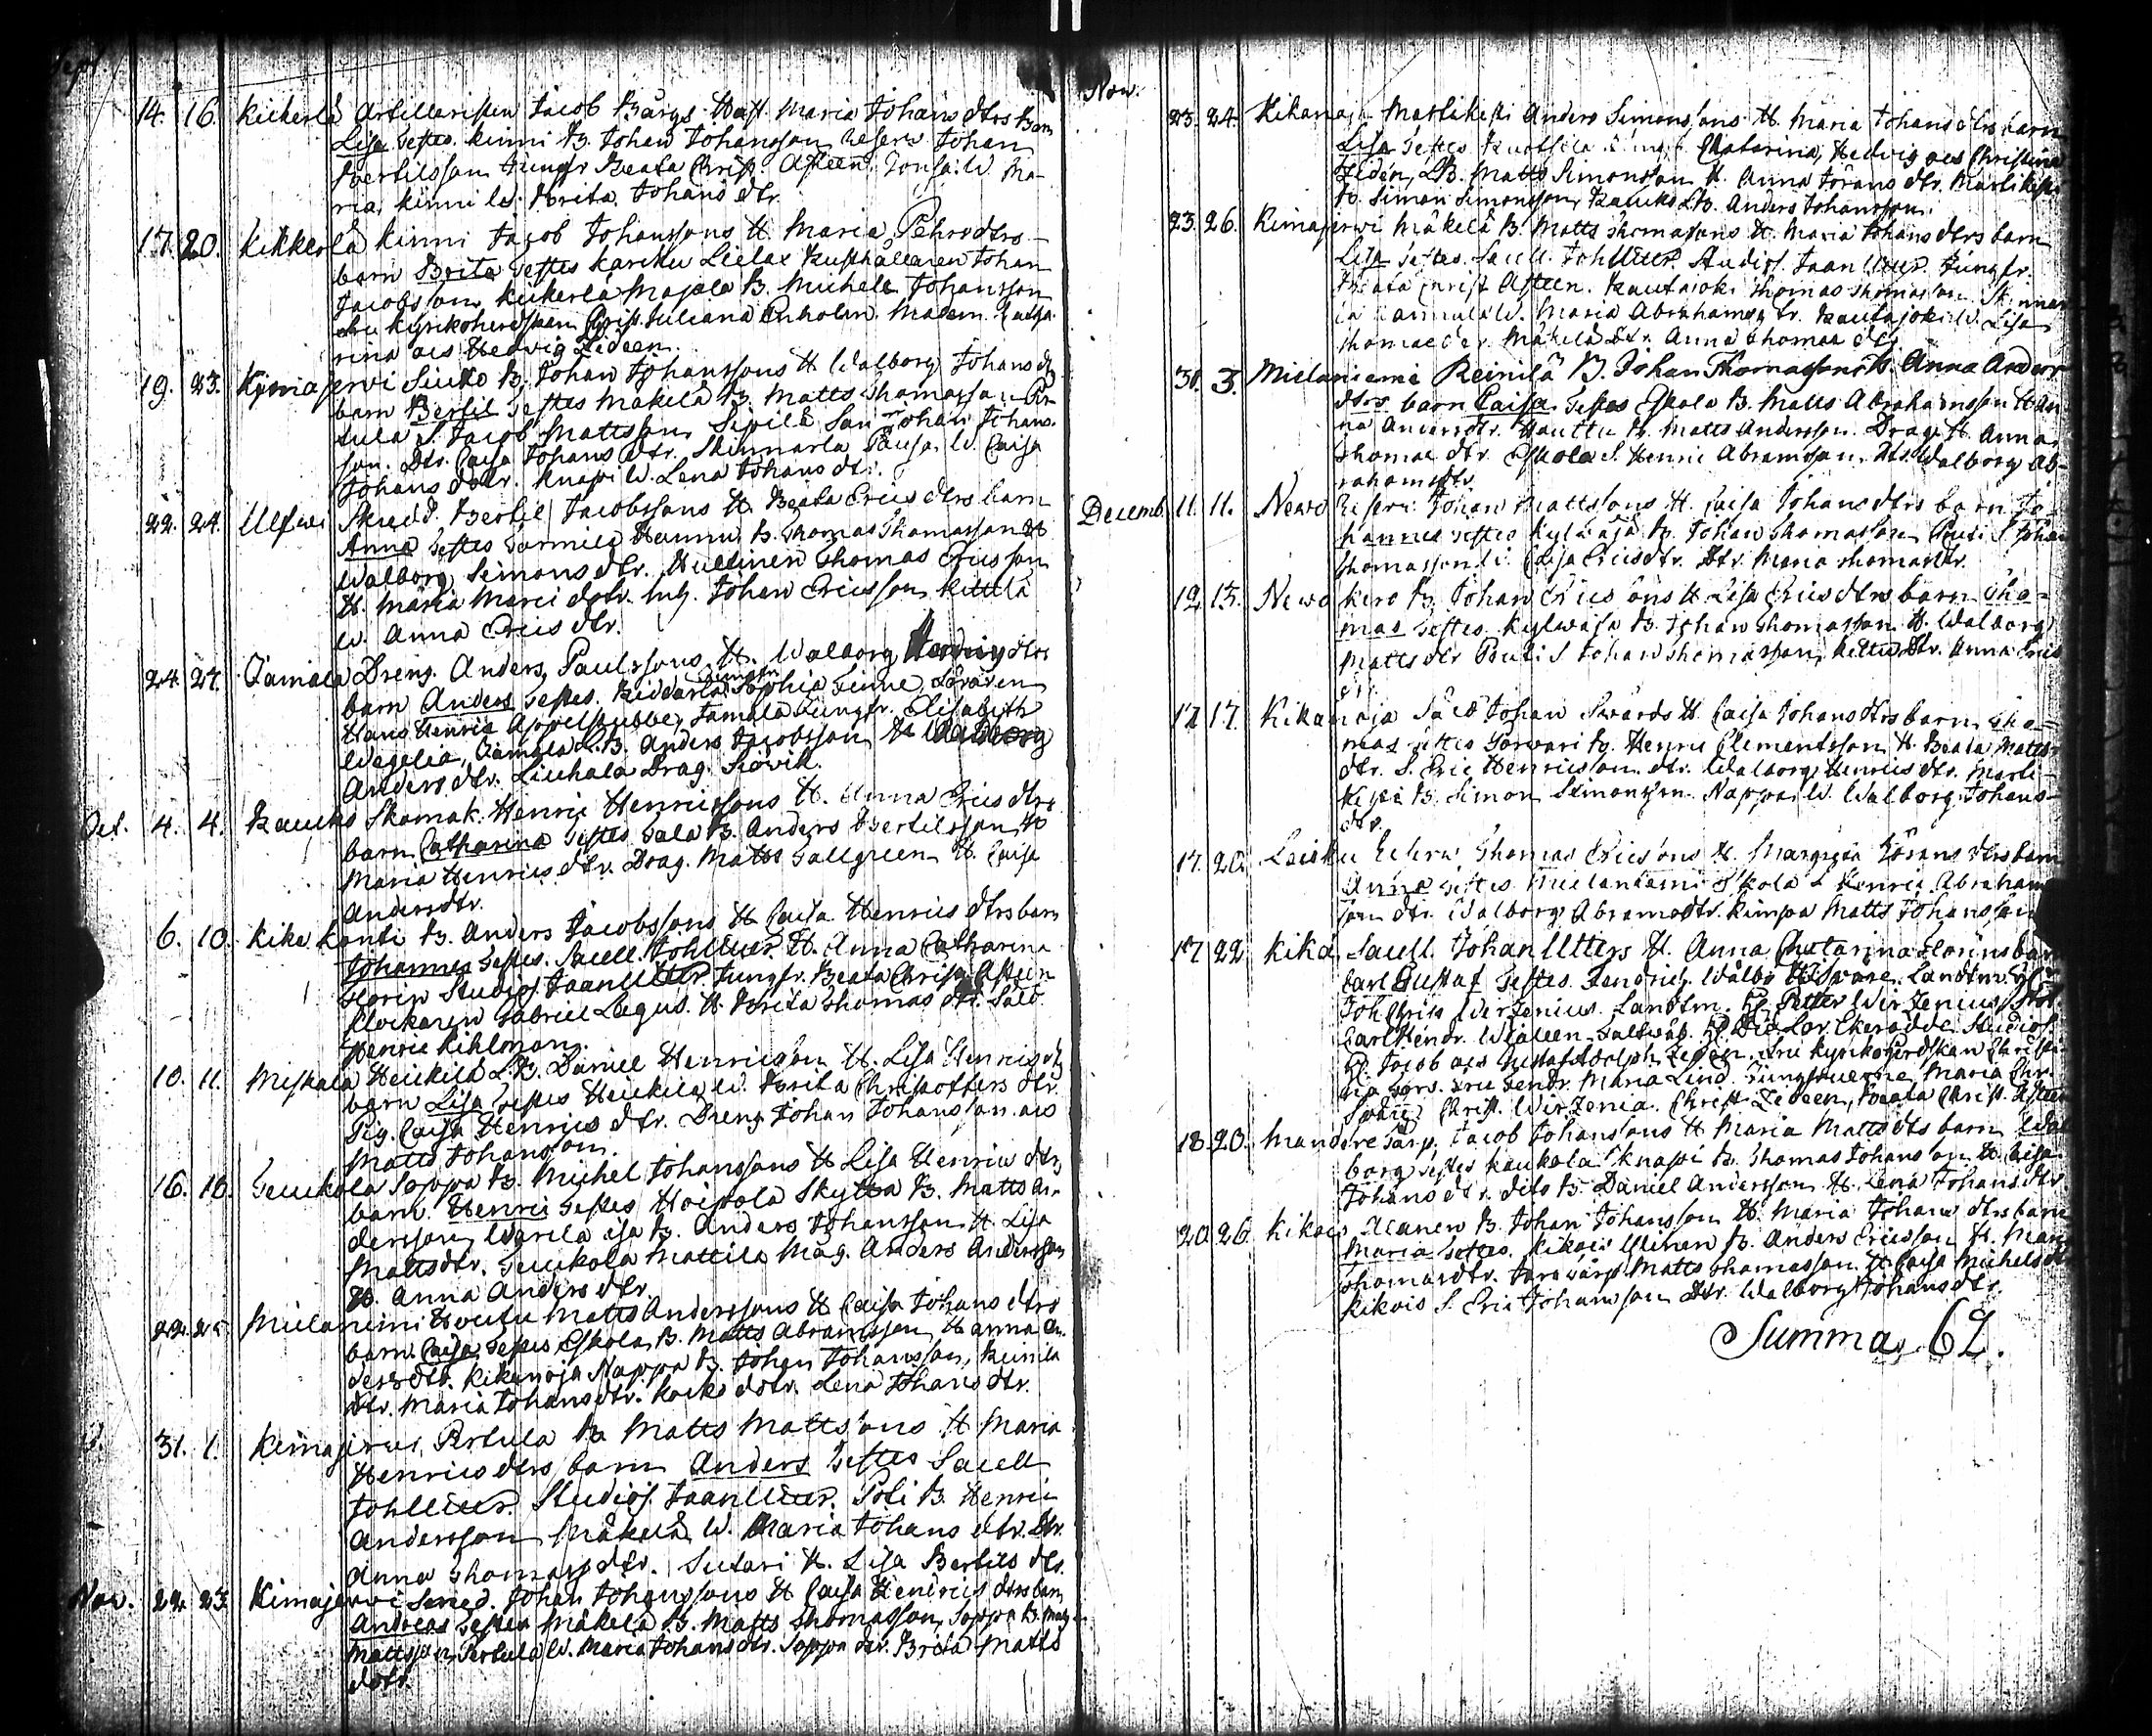 Sept.
14. 16. Kikerlä Artilleristen Jacob Bärgs Hust. Maria Johans dtrs barn
Lisa Testes Kinni B. Johan Johansson Reserv Johan
Bertilsson Jungfr Beata Christ. Asteen. W. Ma-
ria, Kinni W. Brita Johans dtr.
17. 20. Kikkerlä Kinni Jacob Johanssons H. Maria Pehrs dtrs
barn Brita Testes Karcku Lielax Rusthållaren Johan
Jacobsson Kikerlä Majala B. Michell Johansson
Kyrkoherdskan Christ. Juliana Enholm. Madem. Catha-
rina ocs Hedvig Zideen.
19. 23. Kymajervi Siuko B. Johan Johanssons H Walborg Johans dtr
barn Bertil Testes Mäkelä B. Matts Thomasson Per-
tula S. Jacob Mattsson Sipilä Son Johan Johans-
son. Dtr. Caisa Johans dtr. Skinnarla W. Caisa
Johans dotr. Knapi W. Lena Johans dtr.
22. 24. Skredd. Bertil Jacobssons H. Beata Erics dtrs barn
Anna Testes Sormila Hannu B. Thomas Thomasson H
Walborg Simons dtr. Hullinen Thomas Ericsson
H. Maria Marci dotr. Inh. Johan Ericsson Kittilä
W. Anna Erics dtr.
24. 27. Tamala Dreng. Anders Paulssons H. Walborg dtrs
barn Anders Testes. Riddarla Sophia
Hans Henric Appelgubbe, Tamala Jungfr. Elisabeth
Wegelia, Tamala L.B. Anders Jacobsson H Walborg
Anders dtr. Liuhala Drag. Siövik.
Oct. 4. 4. Kaucko Skomak. Henric Henricssons H. Anna Erics dtrs
barn Catharina Testes Sala B. Anders Bertilsson H
Maria Henrics dtr. Drag. Matts Sallgreen H. Caisa
Andersdtr.
6. 10. Kika Kanti B. Anders Jacobssons H Caisa Henrics dtrs barn
Johannes Testes. Sacell. Joh Utter H. Anna Catharina
Florin Studios Jaan Utter. Jungfr. Beata Christ. Asteen
Klockaren Gabriel Legus. H Brita Thomas dtr. Sald.
Henric Kihlman.
10. 11. Miskala Heickilä L.B. Daniel Henricson H. Lisa Henrics dtr
barn Lisa Testes Heickilä W. Brita Christoffers dtr.
Pig. Caisa Henrics dtr. Dreng Johan Johansson ocs
Matts Johansson.
16. 16. Seuckola Soppa B. Michel Johanssons H Lisa Henrics dtrs
barn Henric Testes Hoipola Skyttä B. Matts An-
dersson Warila B. Anders Johansson H. Lisa
Mattsdtr. Seuckola Mattila Måg. Anders Andersson
H. Anna Anders dtr.
22. 25. Mielanjemi Houttu Matts Anderssons H Caisa Johans dtrs
barn Caisa Testes Eskola B. Matts Abramsson H Anna An-
dersdtr. Kikanoja Nappa B. Johan Johansson, Reinilä
dtr. Maria Johansdtr. Koiko dotr. Lena Johans dtr.
31. 1. Kimajervi Pertula B Matts Mattssons H Maria
Henrics dtrs barn Anders Testes Sacell
Joh Utter. Studios. Jaan Utter. Poti B. Henric
Andersson Mäkelä W. Maria Johans dtr. Dtr.
Anna Thomasdtr. Sutari H. Lisa Bertils dtr.
Nov. 22. 23. Kimajervi Smed. Johan Johanssons H Caisa Henrics dtrs barn
Andreas Testes Mäkelä B. Matts Thomasson, Soppa B. Matts
Mattsson Pertula W. Maria Johans dtr. Soppa dtr. Brita Matts
dotr.
Nov.
23. 24. Kikanoja Marlikeski Anders Simonssons H. Maria Johans dtrs barn
Lisa Testes Catarina, Hedvig ocs Christina
Zidén, L.B. Matts Simonsson H. Anna Jörans dtr. Marlikeski
B. Simon Simonsson, Kaucko L.B. Anders Johansson.
23. 26. Kimajervi Mäkelä B. Matts Thomassons H. Maria Johans dtrs barn
Lisa Testes. Sacell. Joh Utter. Studios. Jaan Utter. Jungfr.
Beata Christ Asteen. Rautajoki Thomas Thomasson Skinnar-
la W. Maria Abrahams dtr. Rautajoki W. Lisa
Thomae dtr. Mäkelä Dtr. Anna Thomae dtr.
30. 3. Mielaniemi Reinilä B. Johan Thomassons H. Anna Anders
dtrs barn Caisa Testes Eskola B. Matts Abrahamsson H An-
na Andersdtr. Houttu B. Matts Andersson. Drag. H. Anna
Thomae dtr Eskola S. Henric Abramsson, Dtr. Walborg Ab-
rahamsdtr.
Decemb. 11. 11. Newo Reserv. Johan Mattssons H. Caisa Johans dtrs barn Jo-
hannes Testes Kylväjä B. Johan Thomasson Pouti S. Johan
Thomasson H. Caisa Ericsdtr. Dtr. Maria Thomasdtr.
12. 13. Newo Kero B. Johan Ericsons H. Lisa Erics dtrs barn Tho-
mas Testes Kylwäjä B. Johan Thomasson H. Walborg
Matts dtr Pouti S Johan Thomasson, Dtr. Anna Erics
dtr.
17 17. Kikanoja Sald Johan Swärds H. Caisa Johans dtrs barn Tho-
mas Testes Sorvari B. Henric Clementsson H. Beata Matts
dtr. S. Eric Henricsson. dtr. Walborg Henrics dtr. Marli-
keski B. Simon Simonsson. Nappa W. Walborg Johans-
dtr.
17. 20. Laisku Reserv Thomas Ericsons H. Margreta Görans dtrs barn
Anna Testes Mielaniemi Eskola S Henric Abraham
son dtr. Walborg Abramsdtr. Kimpa Matts Johansson
17 22 Kika Sacell. Johan Utters H. Anna Chatarina Florins barn
Carl Gustaf Testes. Fendrich. Wälbo Landtm.
Joh Chris Wirzenius. Landtm. Petter Wirzenius
Carl Hendr. Studios.
Jacob ocs Gustaf Adolph Zideen. Fru Kyrkoherdskan Christi-
na Fru Maria Lind. Jungfruerne Maria Chr.
Christ. Wirzenia. Christ. Zedeen, Beata Christ. Asteen
18. 20. Jacob Johanssons H Maria Matts dtrs barn Wal-
borg Testes Kaukola Knapi B. Thomas Johansson H. Caisa
Johans dtr. dito B. Daniel Andersson H. Lena Johans dtr
20. 26. Kikois Ulanen B. Johan Johansson H. Maria Johans dtrs barn
Maria Testes. Kikois Ulinen B. Anders Ericsson H. Maria
Thomasdtr. Matts Thomasson H. Caisa Michels dtr
Kikois S. Eric Johansson Dtr. Walborg Johans dtr.
Summa 62.